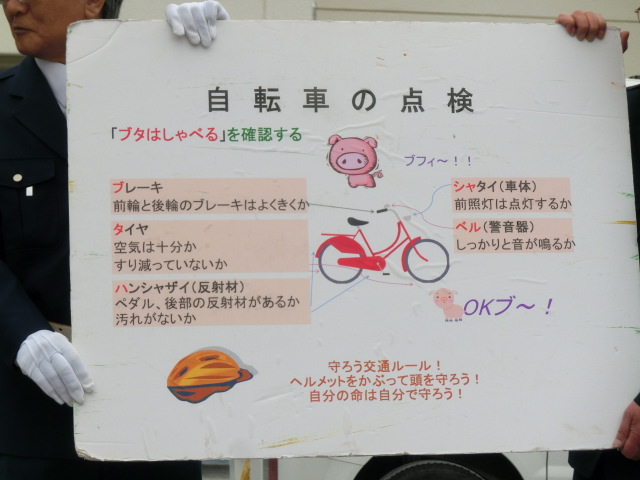 自転車の点検
「ブタはしゃべる」を確認する
ブフィ～！！
ブレーキ
前輪と後輪のブレーキはよくきくか
タイヤ
空気は十分か
すり減っていないか
ハンシャザイ（反射材）
ペダル、後部の反射材があるか
汚れがないか
シャタイ（車体）
前照灯は点灯するか
ベル（警音器）
しっかりと音が鳴るか
OKブ～！
守ろう交通ルール！
ヘルメットをかぶって頭を守ろう！
自分の命は自分で守ろう！